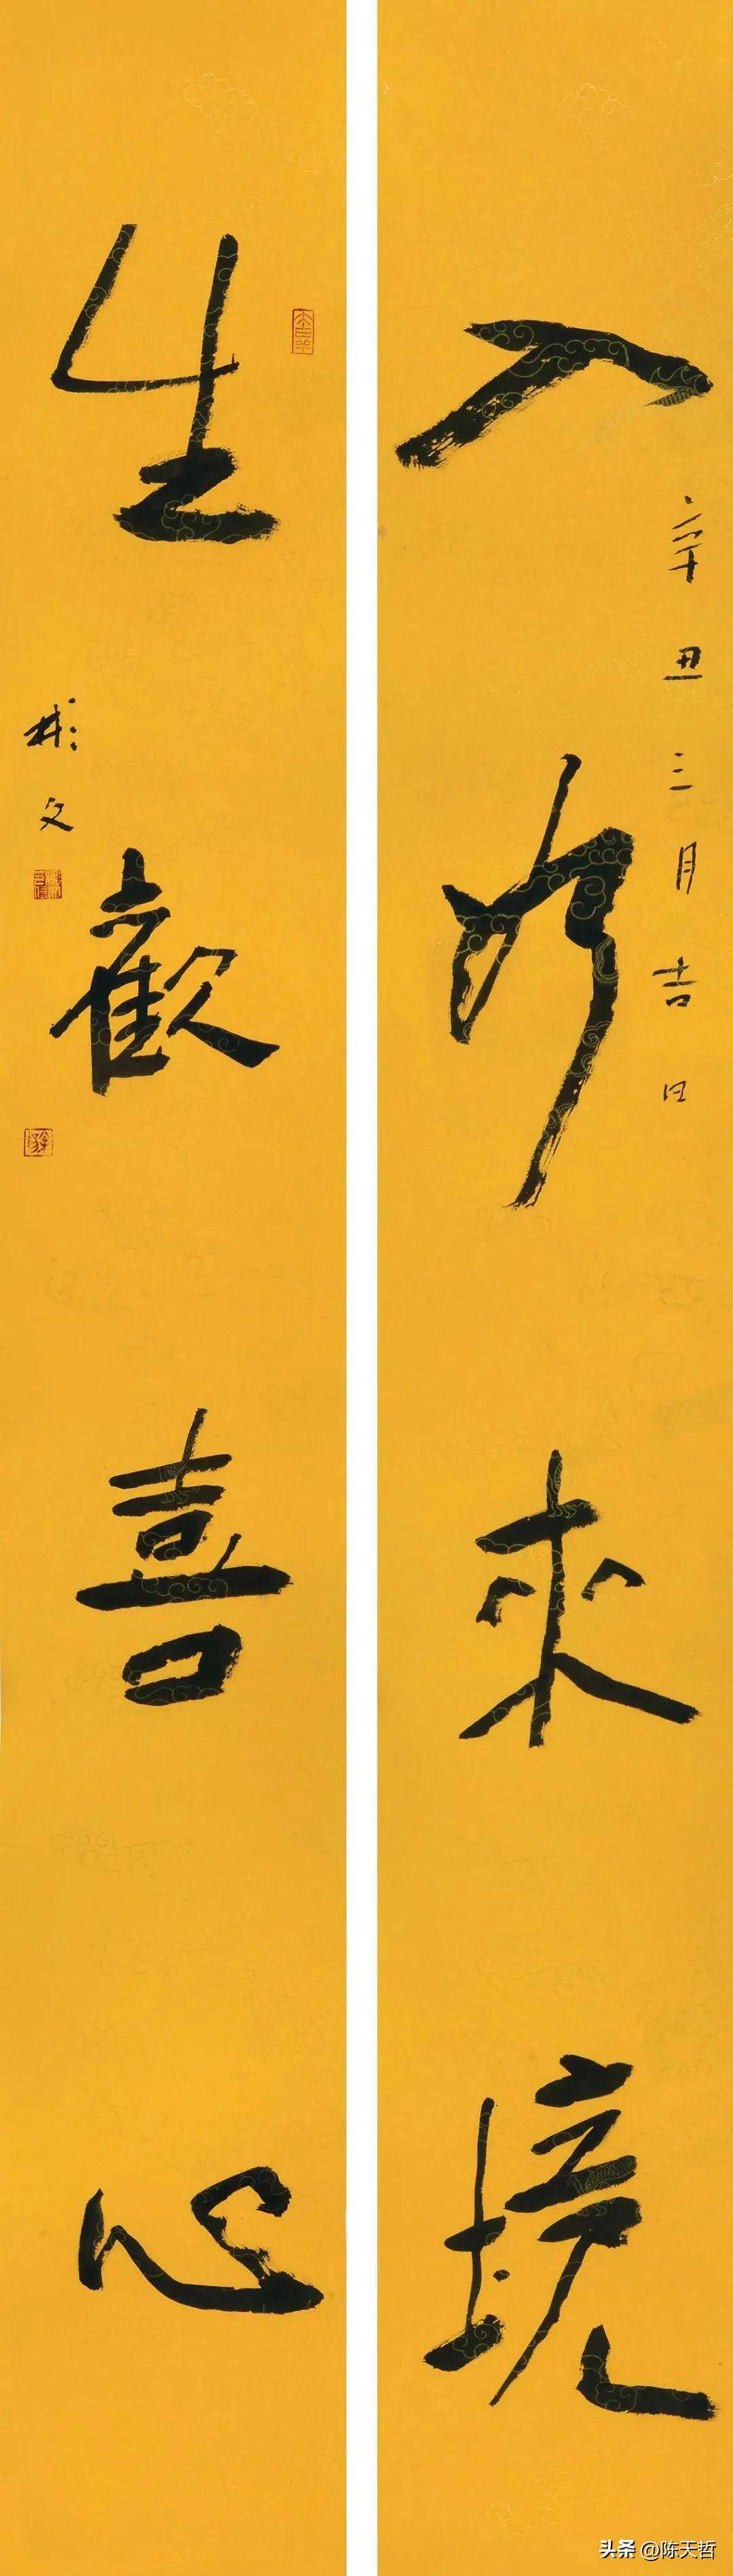 入如來境
辛丑三月吉日
生歡喜心
彬文
头条 @陈天哲